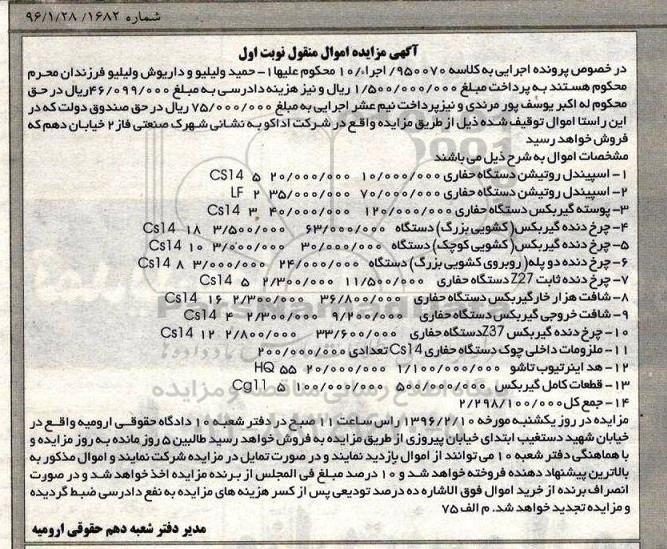 شماره ۱۶۸۲/ ۹۶/۱/۲۸
آگهی مزایده اموال منقول نوبت اول
در خصوص پرونده اجرایی به کلاسه ۹۵۰۰۷۰/ اجراء/۱۰ محکوم علیها۱- حمید ولیلیو و داریوش ولیلیو فرزندان محرم
محکوم هستند به پرداخت مبلغ ۱/۵۰۰/۰۰۰/۰۰۰ ریال و نیز هزینه دادرسی به مبلغ ۴۶/۰۹۹/۰۰۰ریال در حق
محکوم له اکبر یوسف پور مرندی و نیزپرداخت نیم عشر اجرایی به مبلغ ۷۵/۰۰۰/۰۰۰ ریال در حق صندوق دولت که در
این راستا اموال توقیف شده ذیل از طریق مزایده واقع در شرکت اداکو به نشانی شهرک صنعتی فاز ۲ خیابان دهم که به
فروش خواهد رسید
مشخصات اموال به شرح ذیل می باشند
۱- اسپیندل روتیشن دستگاه حفاری ۱۰/۰۰۰/۰۰۰ ۲۰/۰۰۰/۰۰۰ ۵ CS14
۲- اسپیندل روتیشن دستگاه حفاری ۷۰/۰۰۰/۰۰۰ ۳۵/۰۰۰/۰۰۰ ۲ LF
۳- پوسته گیربکس دستگاه حفاری ۱۲۰/۰۰۰/۰۰۰ ۴۰/۰۰۰/۰۰۰ ۳ Cs14
۴- چرخ دنده گیربکس(کشویی بزرگ) دستگاه ۶۳/۰۰۰/۰۰۰ ۳/۵۰۰/۰۰۰ ۱۸ Cs14
۵- چرخ دنده گیربکس(کشویی کوچک) دستگاه ۳۰/۰۰۰/۰۰۰ ۳/۰۰۰/۰۰۰ ۱۰ Cs14
۶- چرخ دنده دو پله(روبروی کشویی بزرگ) دستگاه ۲۴/۰۰۰/۰۰۰ ۳/۰۰۰/۰۰۰ ۸ Cs14
۷- چرخ دنده ثابت Z27 دستگاه حفاری ۱۱/۵۰۰/۰۰۰ ۲/۳۰۰/۰۰۰ ۵ Cs14
۸- شافت هزار خار گیربکس دستگاه حفاری ۳۶/۸۰۰/۰۰۰ ۲/۳۰۰/۰۰۰ ۱۶ Cs14
۹- شافت خروجی گیربکس دستگاه حفاری ۹/۲۰۰/۰۰۰ ۲/۳۰۰/۰۰۰ ۴ Cs14
۱۰- چرخ دنده گیربکس Z37دستگاه حفاری ۳۳/۶۰۰/۰۰۰ ۲/۸۰۰/۰۰۰ ۱۲ Cs14
۱۱- ملزومات داخلی چوک دستگاه حفاری Cs14 تعدادی ۲۰۰/۰۰۰/۰۰۰
۱۲- هد اینرتیوب تاشو ۱/۱۰۰/۰۰۰/۰۰۰ ۲۰/۰۰۰/۰۰۰ ۵۵ HQ
۱۳- قطعات کامل گیربکس ۵۰۰/۰۰۰/۰۰۰ ۱۰۰/۰۰۰/۰۰۰ ۵ Cg11
۱۴- جمع کل ۲/۲۹۸/۱۰۰/۰۰۰
مزایده در روز یکشنبه مورخه ۱۳۹۶/۲/۱۰ راس ساعت ۱۱ صبح در دفتر شعبه ۱۰ دادگاه حقوقی ارومیه واقع در
خیابان شهید دستغیب ابتدای خیابان پیروزی از طریق مزایده به فروش خواهد رسید طالبین ۵ روز مانده به روز مزایده و
با هماهنگی دفتر شعبه ۱۰ می توانند از اموال بازدید نمایند و در صورت تمایل در مزایده شرکت نمایند و اموال مذکور به
بالاترین پیشنهاد دهنده فروخته خواهد شد و ۱۰ درصد مبلغ فی المجلس از برنده مزایده اخذ خواهد شد و در صورت
انصراف برنده از خرید اموال فوق الاشاره ده درصد تودیعی پس از کسر هزینه های مزایده به نفع دادرسی ضبط گردیده
و مزایده تجدید خواهد شد. م الف ۷۵
مدیر دفتر شعبه دهم حقوقی ارومیه